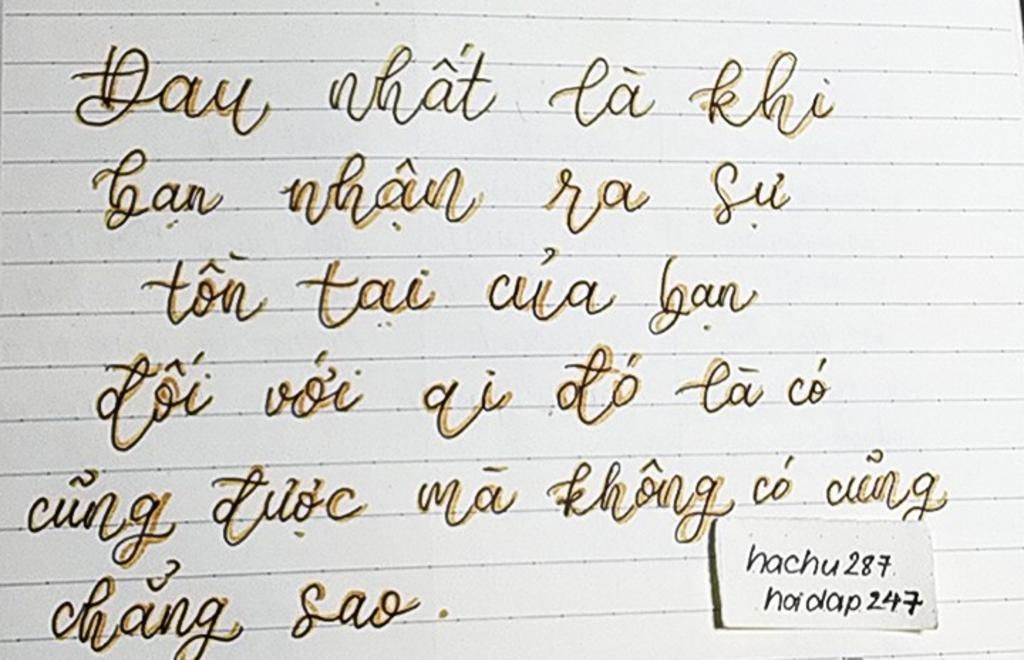 Đau nhất là khi
bạn nhận ra sự
tồn tại của bạn
đối với ai đó là có
cũng được mà không có cũng
chẳng sao.
hachu287
hoidap247